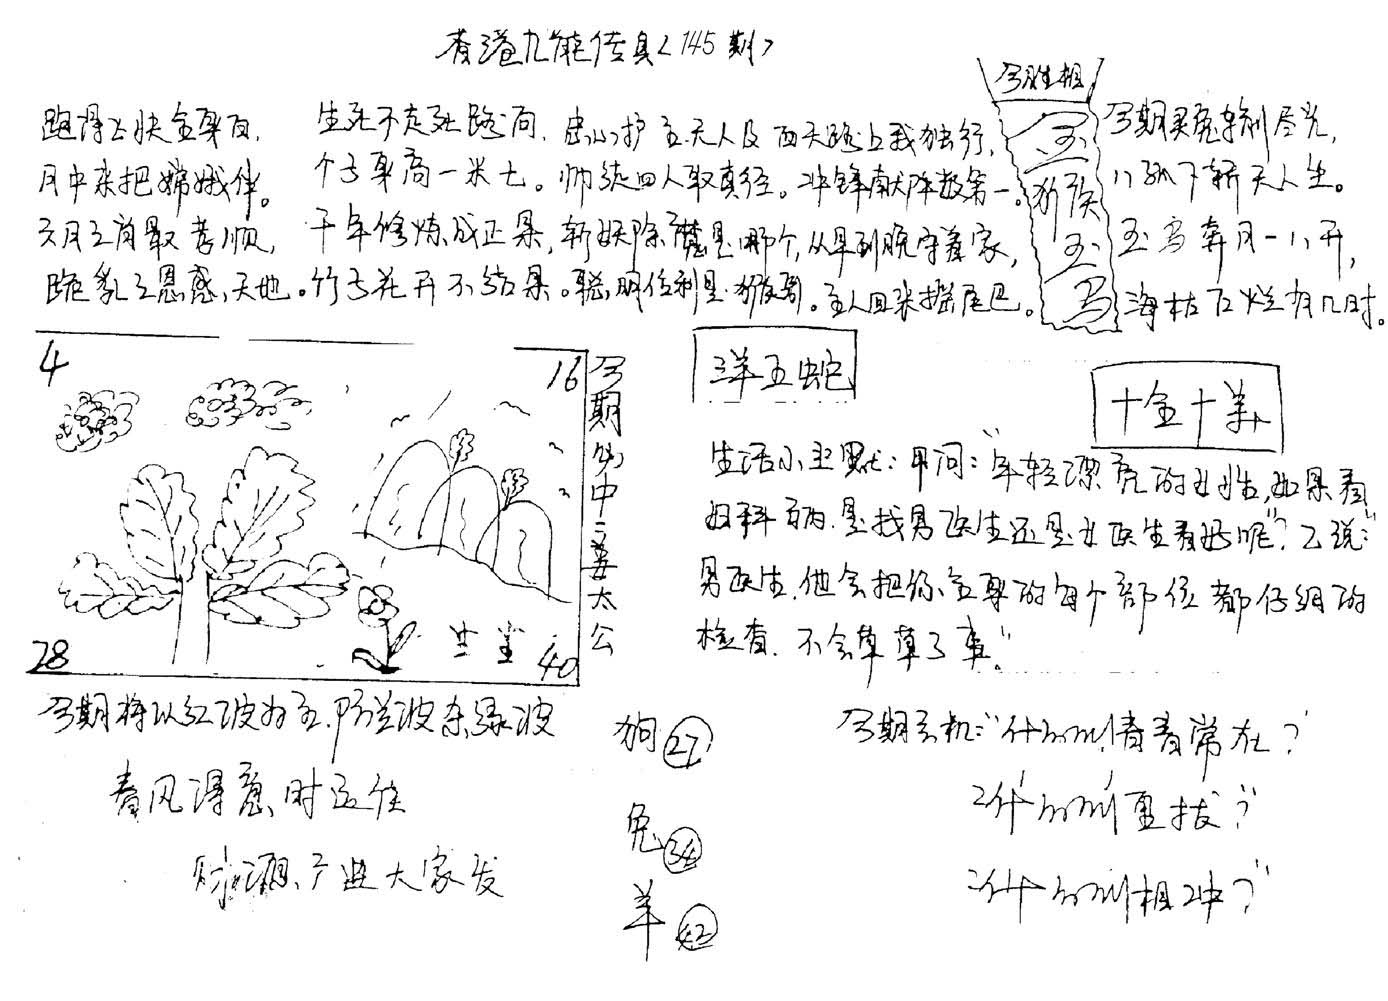 香港九龍传真〈145期〉
今生相
跑得之快全身白,
月中来把嫦娥伴。
六月之前最孝順,
跪乳之恩感天地。
生死不走死路向,
个子身高一米七。
千年修炼成正果,
竹子花开不结果。
忠心护主无人及
师徒四人取真经。
斩妖除魔是哪个,
聪明伶利是猴哥。
西天路上我独行,
冲锋献阵数第一。
从早到晚守着家,
主人回来摇尾巴。
玉
猴
玉
马
今期灵兔转别尽光,
八 下轿天人生。
玉马奔月一八开,
海枯石烂有几时。
4
16
28
40
今期必中=姜太公
洋五蛇
十全十美
生活小幽默:甲问:"年轻漂亮的女性,如果看
妇科病,是找男医生还是女医生看好呢?"乙说:"
男医生,他会把你全身的每个部位都仔细的
检查,不会草草了事。"
今期将以红波为主,防兰波杀绿波
春风得意时运佳
财源广进大家发
狗 27
兔 34
羊 42
今期玄机:"什么叫青春常在?
什么叫 拔?
什么叫相冲?"